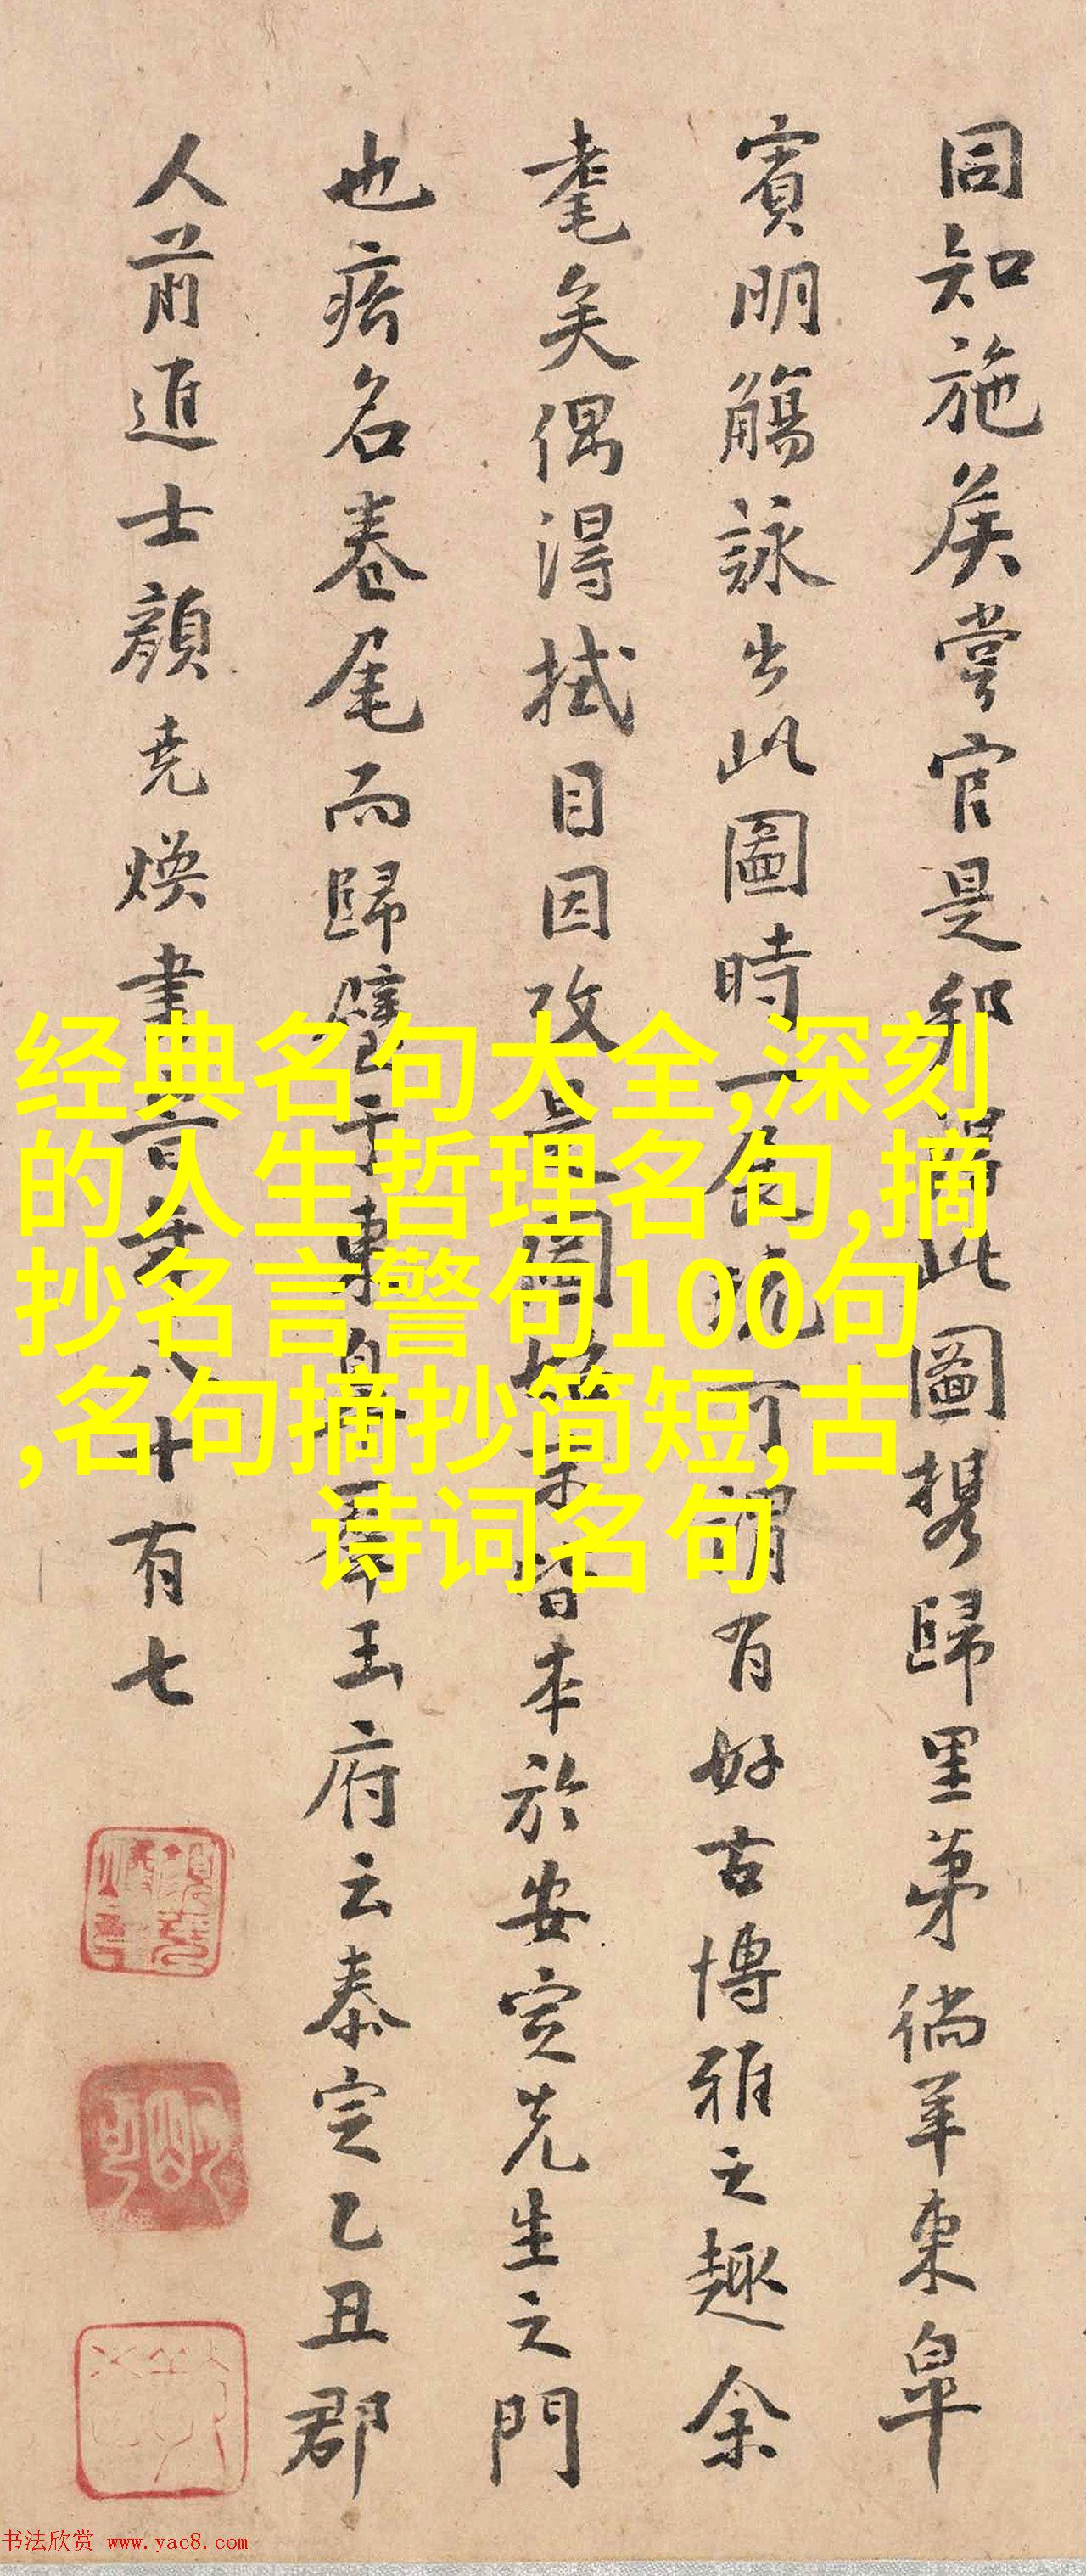 同知施侯嘗官是邦得此圖携歸里第徜羊東皐
賓明觴詠出此圖時一展玩可謂有好古博雅之趣余
耄矣偶得拭目因攷是圖始末皆本於安定先生之門
也瘩名卷尾而歸璧于東皐羣玉府云泰定乙丑郡
人前進士顏堯煥書時年八十有七
经典名句大全,深刻
的人生哲理名句,摘
抄名言警句100句
,名句摘抄简短,古
诗词名句
书法欣赏 www.yac8.com